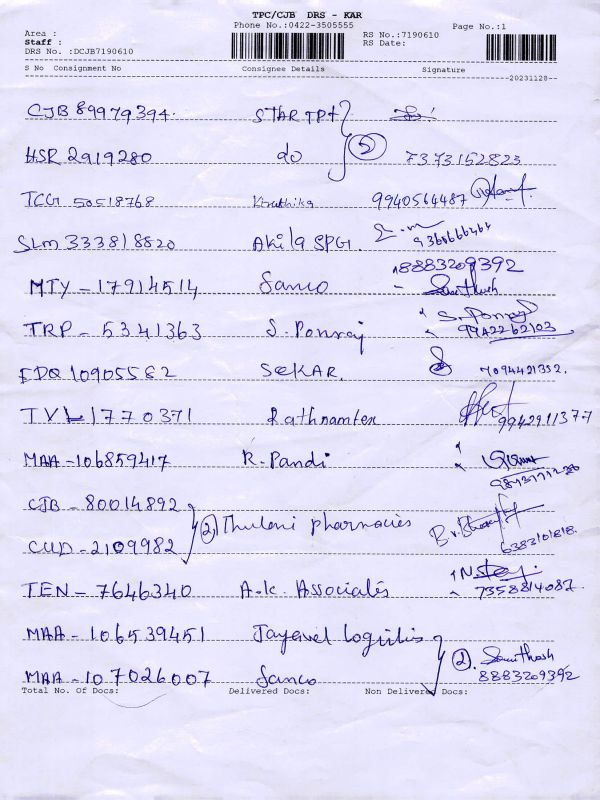 TPC/CJB DRS - KAR
Phone No.:0422-3505555
Page No.:1
Area :
Staff :
RS No.:7190610
DRS No. :DCJB7190610
RS Date:
S No Consignment No Consignee Details Signature
20231128
CJB 89979394. STAR TPt
HSR 2919280 do 7373152823
TCG 50518768 Kruthika 9940564487
SLM 333818820 Akila SPG.
8883209392
MTY - 17914514 Sanco Santhosh
S. Ponraj
TRP - 5341363 S. Ponraj 9942262103
EDQ 10905582 SEKAR. 7094421352.
TVL 1770371 Rathnamtex 9942911377
MAA - 106859417 R. Pandi
CJB - 80014892 (2) Thulasi pharmacies
CUD - 2109982 6383101818.
TEN - 7646340 A.K. Associates 7358814087.
MAA - 106539451 Jayavel Logistis
(2) Santhosh
MAA - 107026007 Sanco 8883209392
Total No. Of Docs: Delivered Docs: Non Delivered Docs: